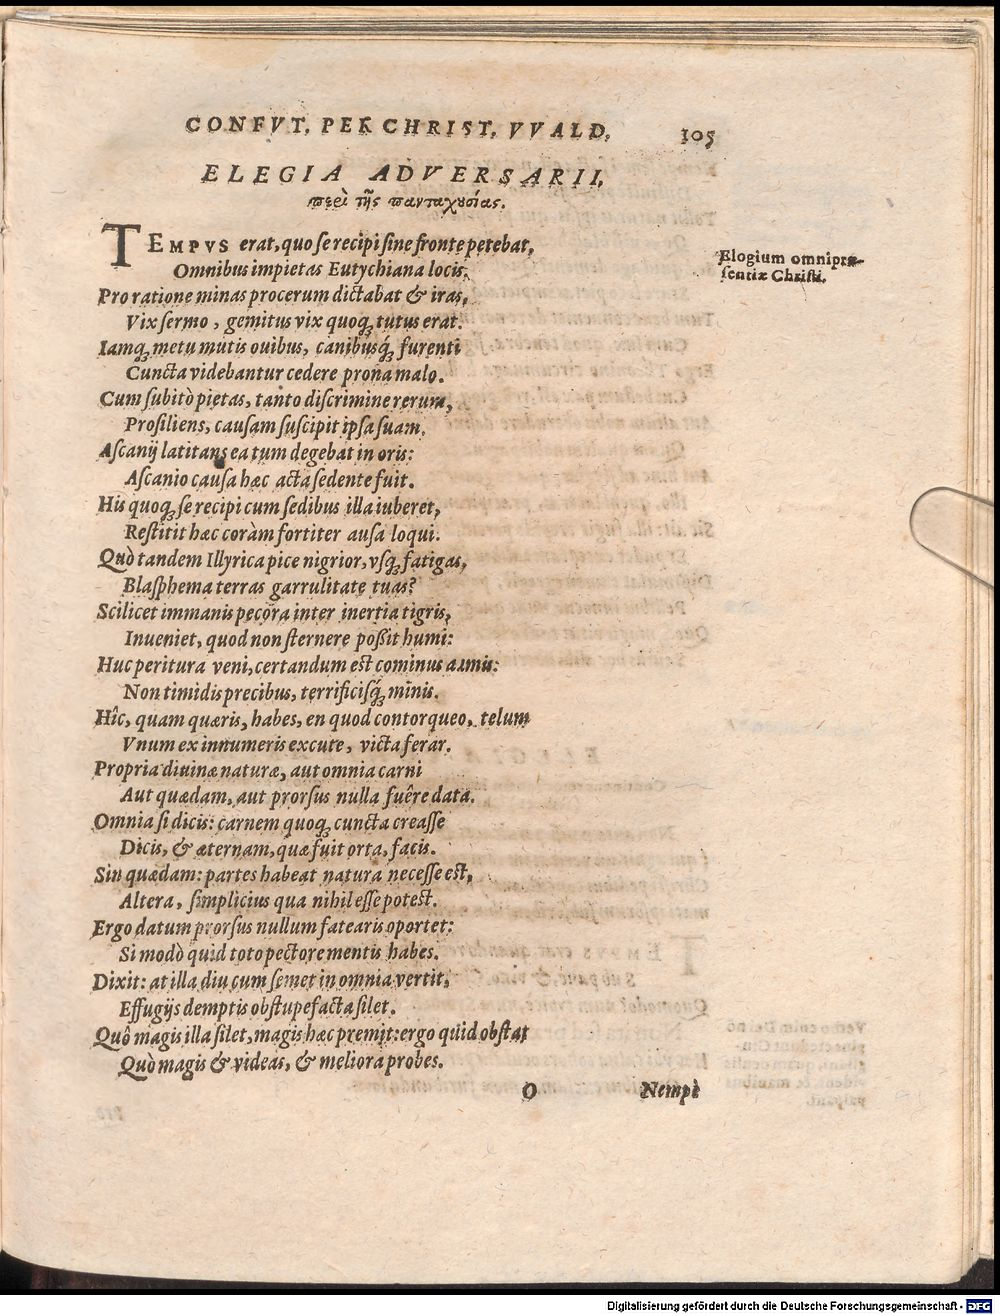 CONFVT. PER CHRIST. VVALD. 105
ELEGIA ADVERSARII,
περὶ τῆς πανταχȣσίας.
TEMPVS erat, quo se recipi sine fronte petebat,
Omnibus impietas Eutychiana locis.
Elogium omnipræ-
sentiæ Christi.
Pro ratione minas procerum dictabat & iras,
Vix sermo, gemitus vix quoq; tutus erat.
Iamq; metu mutis ouibus, canibusq́; furenti
Cuncta videbantur cedere prona malo.
Cum subitò pietas, tanto discrimine rerum,
Prosiliens, causam suscipit ipsa suam.
Ascanij latitans ea tum degebat in oris:
Ascanio causa hæc acta sedente fuit.
His quoq; se recipi cum sedibus illa iuberet,
Restitit hæc coràm fortiter ausa loqui.
Quò tandem Illyrica pice nigrior, vsq; fatigas,
Blasphema terras garrulitate tuas?
Scilicet immanis pecora inter inertia tigris,
Inueniet, quod non sternere poßit humi:
Huc peritura veni, certandum est cominus armis:
Non timidis precibus, terrificisq́; minis.
Hîc, quam quæris, habes, en quod contorqueo, telum
Vnum ex innumeris excute, victa ferar.
Propria diuinæ naturæ, aut omnia carni
Aut quædam, aut prorsus nulla fuêre data.
Omnia si dicis: carnem quoq; cuncta creasse
Dicis, & æternam, quæ fuit orta, facis.
Sin quædam: partes habeat natura necesse est,
Altera, simplicius qua nihil esse potest.
Ergo datum prorsus nullum fatearis oportet:
Si modò quid toto pectore mentis habes.
Dixit: at illa diu cum semet in omnia vertit,
Effugijs demptis obstupefacta silet.
Quô magis illa silet, magis hæc premit: ergo quid obstat
Quò magis & videas, & meliora probes.
O Nempè
Digitalisierung gefördert durch die Deutsche Forschungsgemeinschaft - DFG